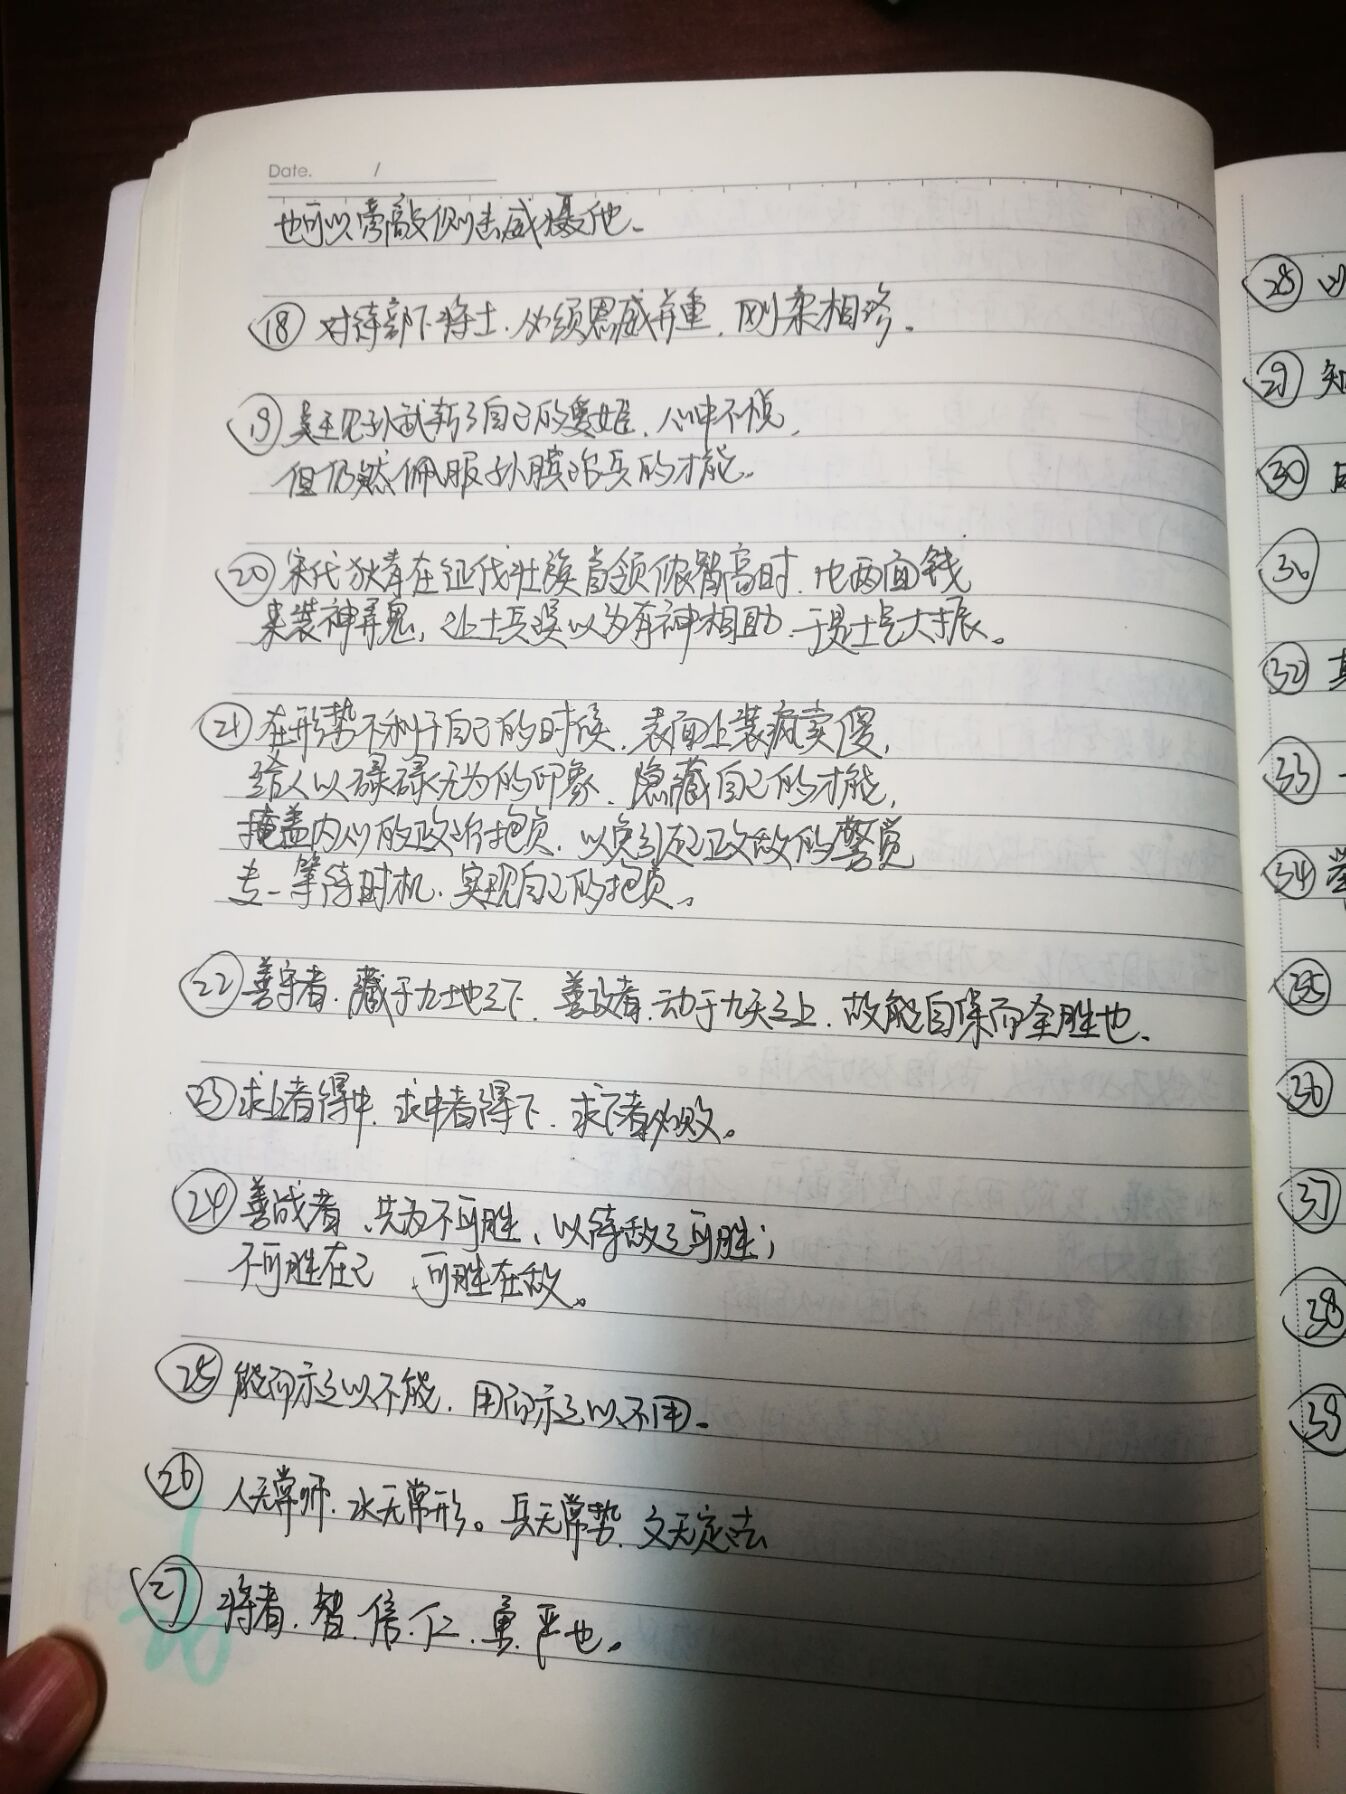 Date. /
也可以旁敲侧击威慑他、
⑱ 对待部下将士、必须恩威并重、刚柔相
⑲ 吴王见孙武斩了自己的爱姬、心中不悦,
但仍然佩服孙膑治兵的才能。
⑳ 宋代狄青在征伐壮族首领侬智高时、 两面钱
来装神弄鬼, 让士兵误以为有神相助、于是士气大振。
㉑ 在形势不利于自己的时候、表面上装疯卖傻,
给人以碌碌无为的印象、隐藏自己的才能,
掩盖内心的政治抱负、以免引起政敌的警觉
专一等待时机、实现自己的抱负。
㉒ 善守者、藏于九地之下、善攻者、动于九天之上、故能自保而全胜也、
㉓ 求上者得中、求中者得下、求下者必败。
㉔ 善战者、先为不可胜、以待敌之可胜;
不可胜在己 、可胜在敌。
㉕ 能而示之以不能、用而示之以不用、
㉖ 人无常师、水无常形。兵无常势、文无定法
㉗ 将者、智、信、仁、勇、严也。
㉘ 以
㉙ 知
㉚
㉛
㉜ 其
㉝
㉞
㉟
㊱
㊲
㊳
㊴